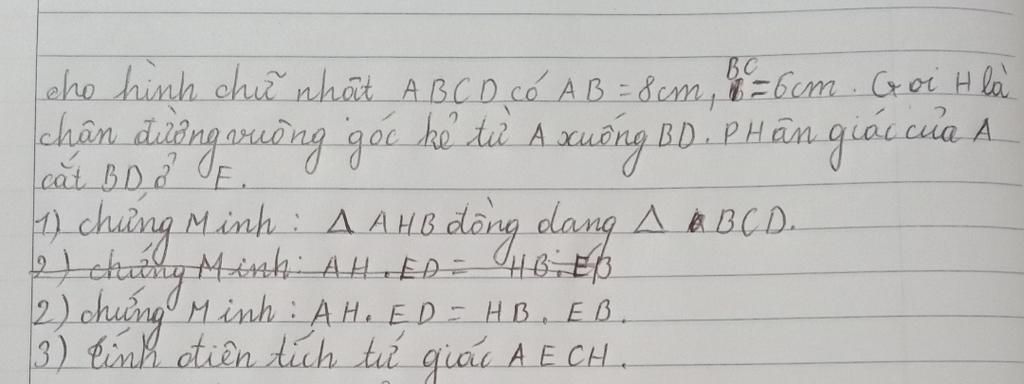 cho hình chữ nhật ABCD có AB = 8cm, BC = 6cm. Gọi H là
chân đường vuông góc kẻ từ A xuống BD. PHân giác của A
cắt BD ở E.
1) chứng Minh : Δ AHB đồng dang Δ BCD.
2) chứng Minh: AH. ED = HB. EB
2) chứng Minh : AH. ED = HB. EB.
3) tính điên tích tứ giác AECH.